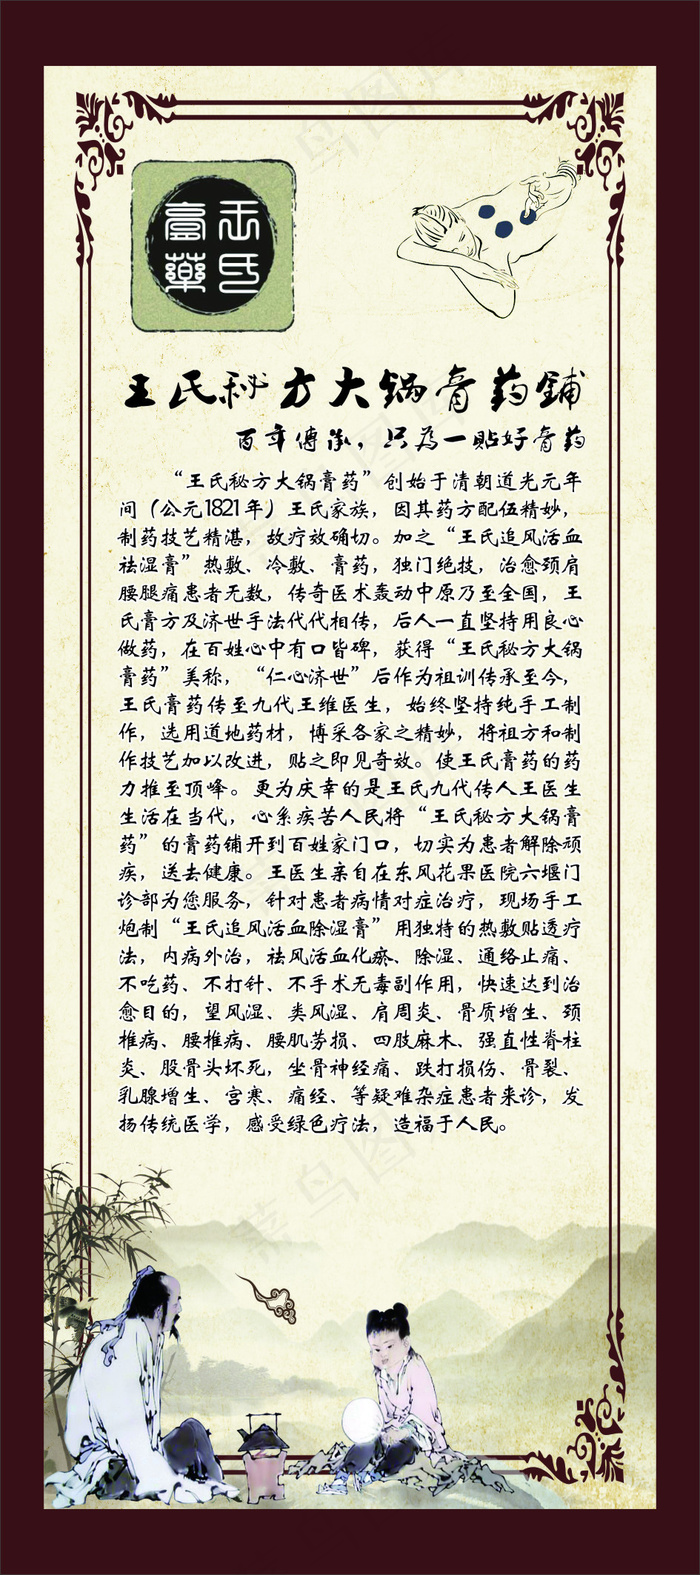 王氏
膏藥
王氏秘方大锅膏药鋪
百年傳承，只為一貼好膏药
“王氏秘方大锅膏药”创始于清朝道光元年
间（公元1821年）王氏家族，因其药方配伍精妙，
制药技艺精湛，故疗效确切。加之“王氏追风活血
祛湿膏”热敷、冷敷、膏药，独门绝技，治愈颈肩
腰腿痛患者无数，传奇医术轰动中原乃至全国，王
氏膏方及济世手法代代相传，后人一直坚持用良心
做药，在百姓心中有口皆碑，获得“王氏秘方大锅
膏药”美称，“仁心济世”后作为祖训传承至今，
王氏膏药传至九代王维医生，始终坚持纯手工制
作，选用道地药材，博采各家之精妙，将祖方和制
作技艺加以改进，贴之即见奇效。使王氏膏药的药
力推至顶峰。更为庆幸的是王氏九代传人王医生
生活在当代，心系疾苦人民将“王氏秘方大锅膏
药”的膏药铺开到百姓家门口，切实为患者解除顽
疾，送去健康。王医生亲自在东风花果医院六堰门
诊部为您服务，针对患者病情对症治疗，现场手工
炮制“王氏追风活血除湿膏”用独特的热敷贴透疗
法，内病外治，祛风活血化瘀、除湿、通络止痛、
不吃药、不打针、不手术无毒副作用，快速达到治
愈目的，望风湿、类风湿、肩周炎、骨质增生、颈
椎病、腰椎病、腰肌劳损、四肢麻木、强直性脊柱
炎、股骨头坏死，坐骨神经痛、跌打损伤、骨裂、
乳腺增生、宫寒、痛经、等疑难杂症患者来诊，发
扬传统医学，感受绿色疗法，造福于人民。